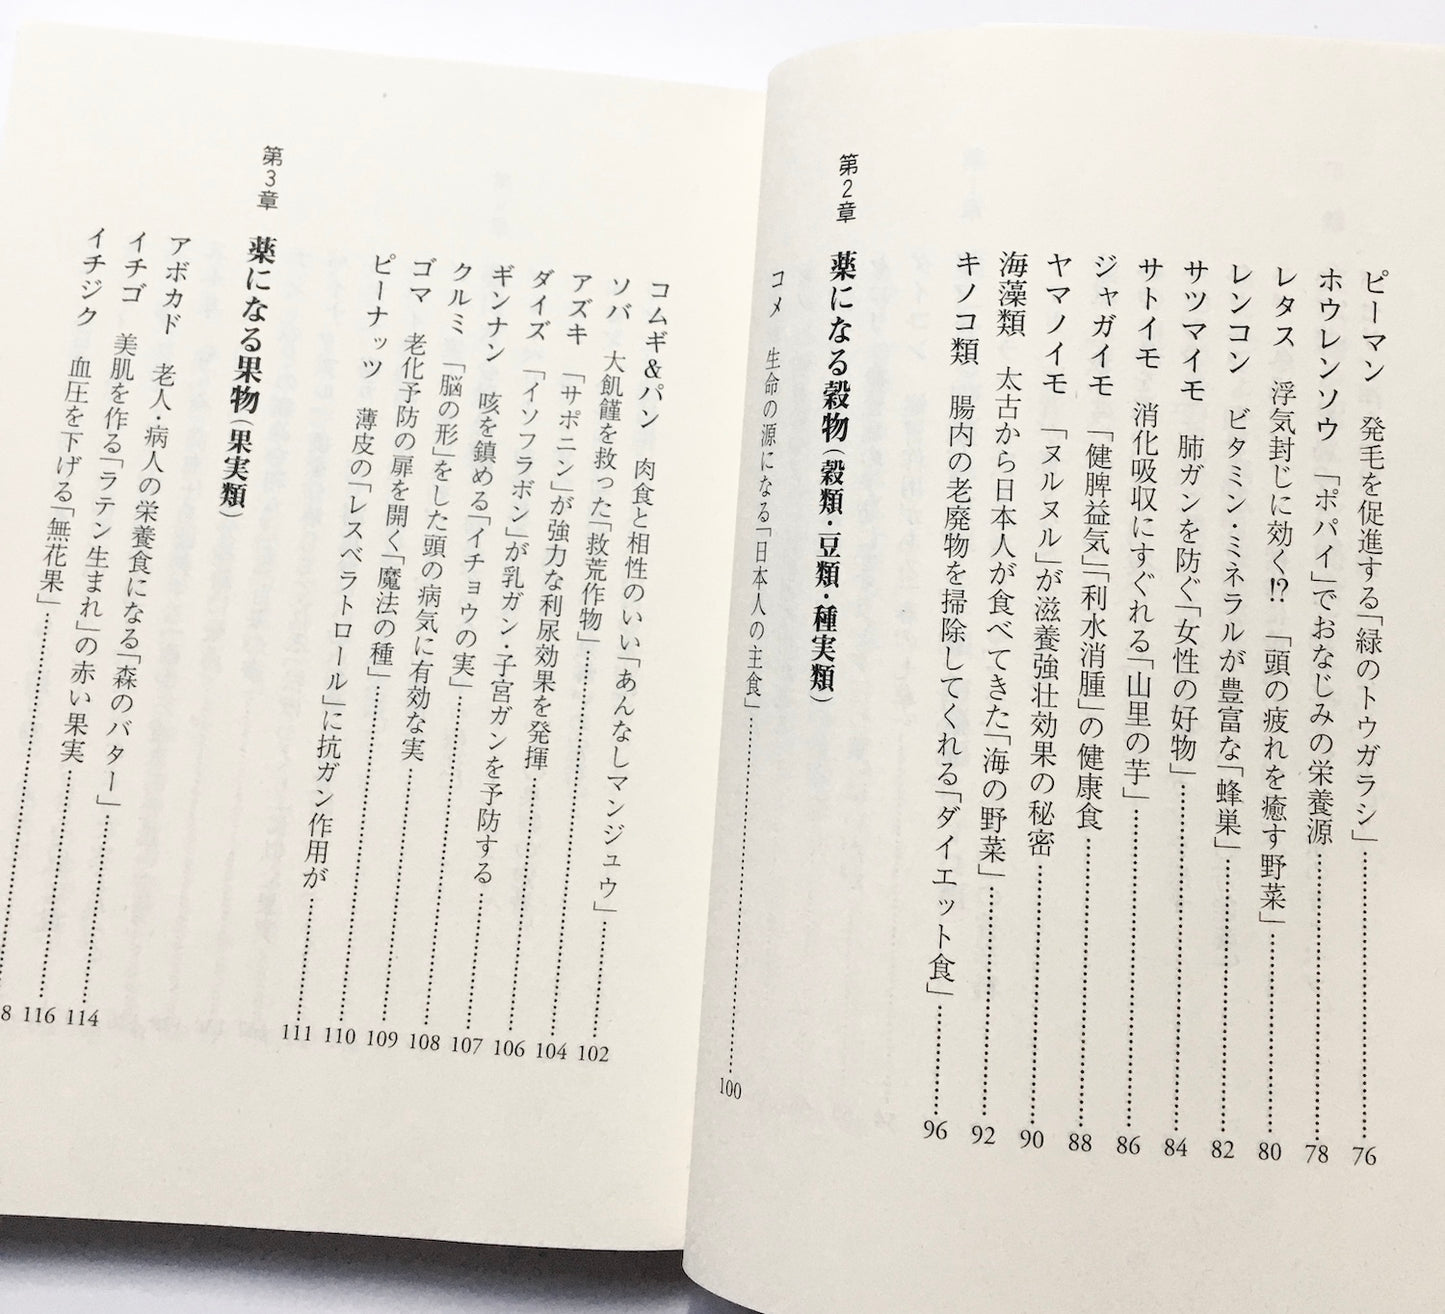 ピーマン　発毛を促進する「緑のトウガラシ」……76
ホウレンソウ　「ポパイ」でおなじみの栄養源……78
レタス　浮気封じに効く!?　「頭の疲れを癒す野菜」……80
レンコン　ビタミン・ミネラルが豊富な「蜂巣」……82
サツマイモ　肺ガンを防ぐ「女性の好物」……84
サトイモ　消化吸収にすぐれる「山里の芋」……86
ジャガイモ　「健脾益気」「利水消腫」の健康食……88
ヤマノイモ　「ヌルヌル」が滋養強壮効果の秘密……90
海藻類　太古から日本人が食べてきた「海の野菜」……92
キノコ類　腸内の老廃物を掃除してくれる「ダイエット食」……96
第2章　薬になる穀物（穀類・豆類・種実類）
コメ　生命の源になる「日本人の主食」……100
コムギ&パン　肉食と相性のいい「あんなしマンジュウ」……102
ソバ　大飢饉を救った「救荒作物」……104
アズキ　「サポニン」が強力な利尿効果を発揮……106
ダイズ　「イソフラボン」が乳ガン・子宮ガンを予防する……107
ギンナン　咳を鎮める「イチョウの実」……108
クルミ　「脳の形」をした頭の病気に有効な実……109
ゴマ　老化予防の扉を開く「魔法の種」……110
ピーナッツ　薄皮の「レスベラトロール」に抗ガン作用が……111
第3章　薬になる果物（果実類）
アボカド　老人・病人の栄養食になる「森のバター」……114
イチゴ　美肌を作る「ラテン生まれ」の赤い果実……116
イチジク　血圧を下げる「無花果」……8